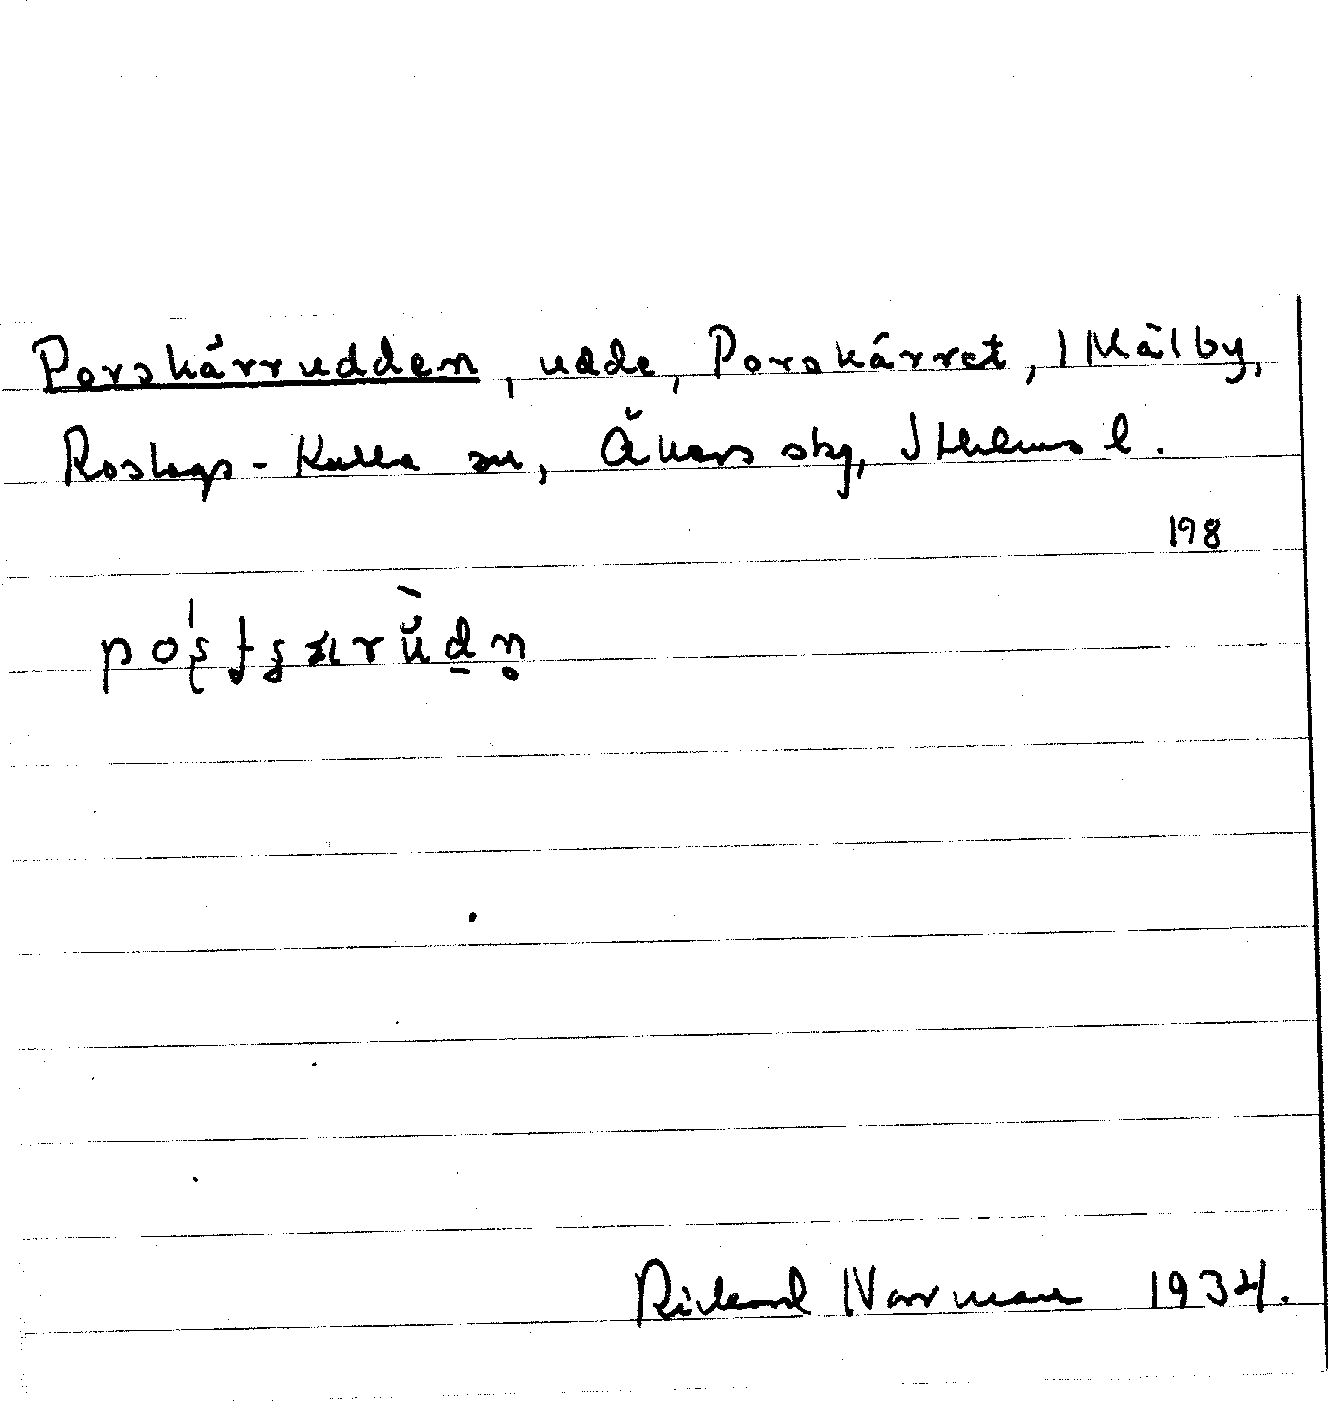 Porskärrudden, udde, Porskärret, 1 Mälby,
Roslags-Kulla sn, Åkers skg, Sthlms l.
198
Rickard Norrman 1934.